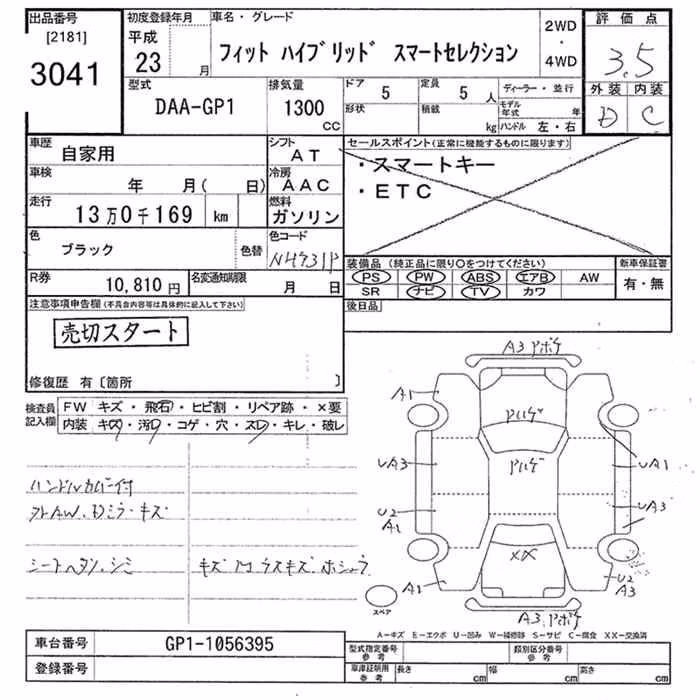 出品番号
[2181]
3041
初度登録年月
平成
23 月
車名・グレード
フィット ハイブリッド スマートセレクション
2WD
・
4WD
評価点
3.5
外装 内装
D C
型式
DAA-GP1
排気量
1300
CC
ドア
5
形状
定員
5 人
積載
kg
ディーラー・並行
モデル年式 年
ハンドル 左・右
車歴
自家用
シフト
AT
車検
年 月( 日)
冷房
AAC
走行
13万0千169 km
燃料
ガソリン
色
ブラック
色替
色コード
NH731P
R券
10,810 円
名変通知期限
月 日
セールスポイント(正常に機能するものに限ります)
・スマートキー
・ETC
装備品 (純正品に限り○をつけてください)
PS PW ABS エアB AW
SR ナビ TV カワ
新車保証書
有・無
後日品
注意事項申告欄(不具合内容等は具体的に記入して下さい)
売切スタート
修復歴 有〔箇所 〕
検査員記入欄
FW キズ・飛石・ヒビ割・リペア跡・×要
内装 キズ・汚レ・コゲ・穴・スレ・キレ・破レ
ハンドルカバー付
外AW、Dミラーキズ
シートヘタリ、シミ
A3 アポケ
A1
UA3
U2
A1
A1
UA1
UA3
U2
A3
XX
A3.アポケ
スペア
A−キズ E−エクボ U−凹み W−補修跡 S−サビ C−腐食 XX−交換済
車台番号
GP1-1056395
登録番号
型式指定番号
参考
類別区分番号
参考
車庫証明用
参考
長さ cm
幅 cm
高さ cm